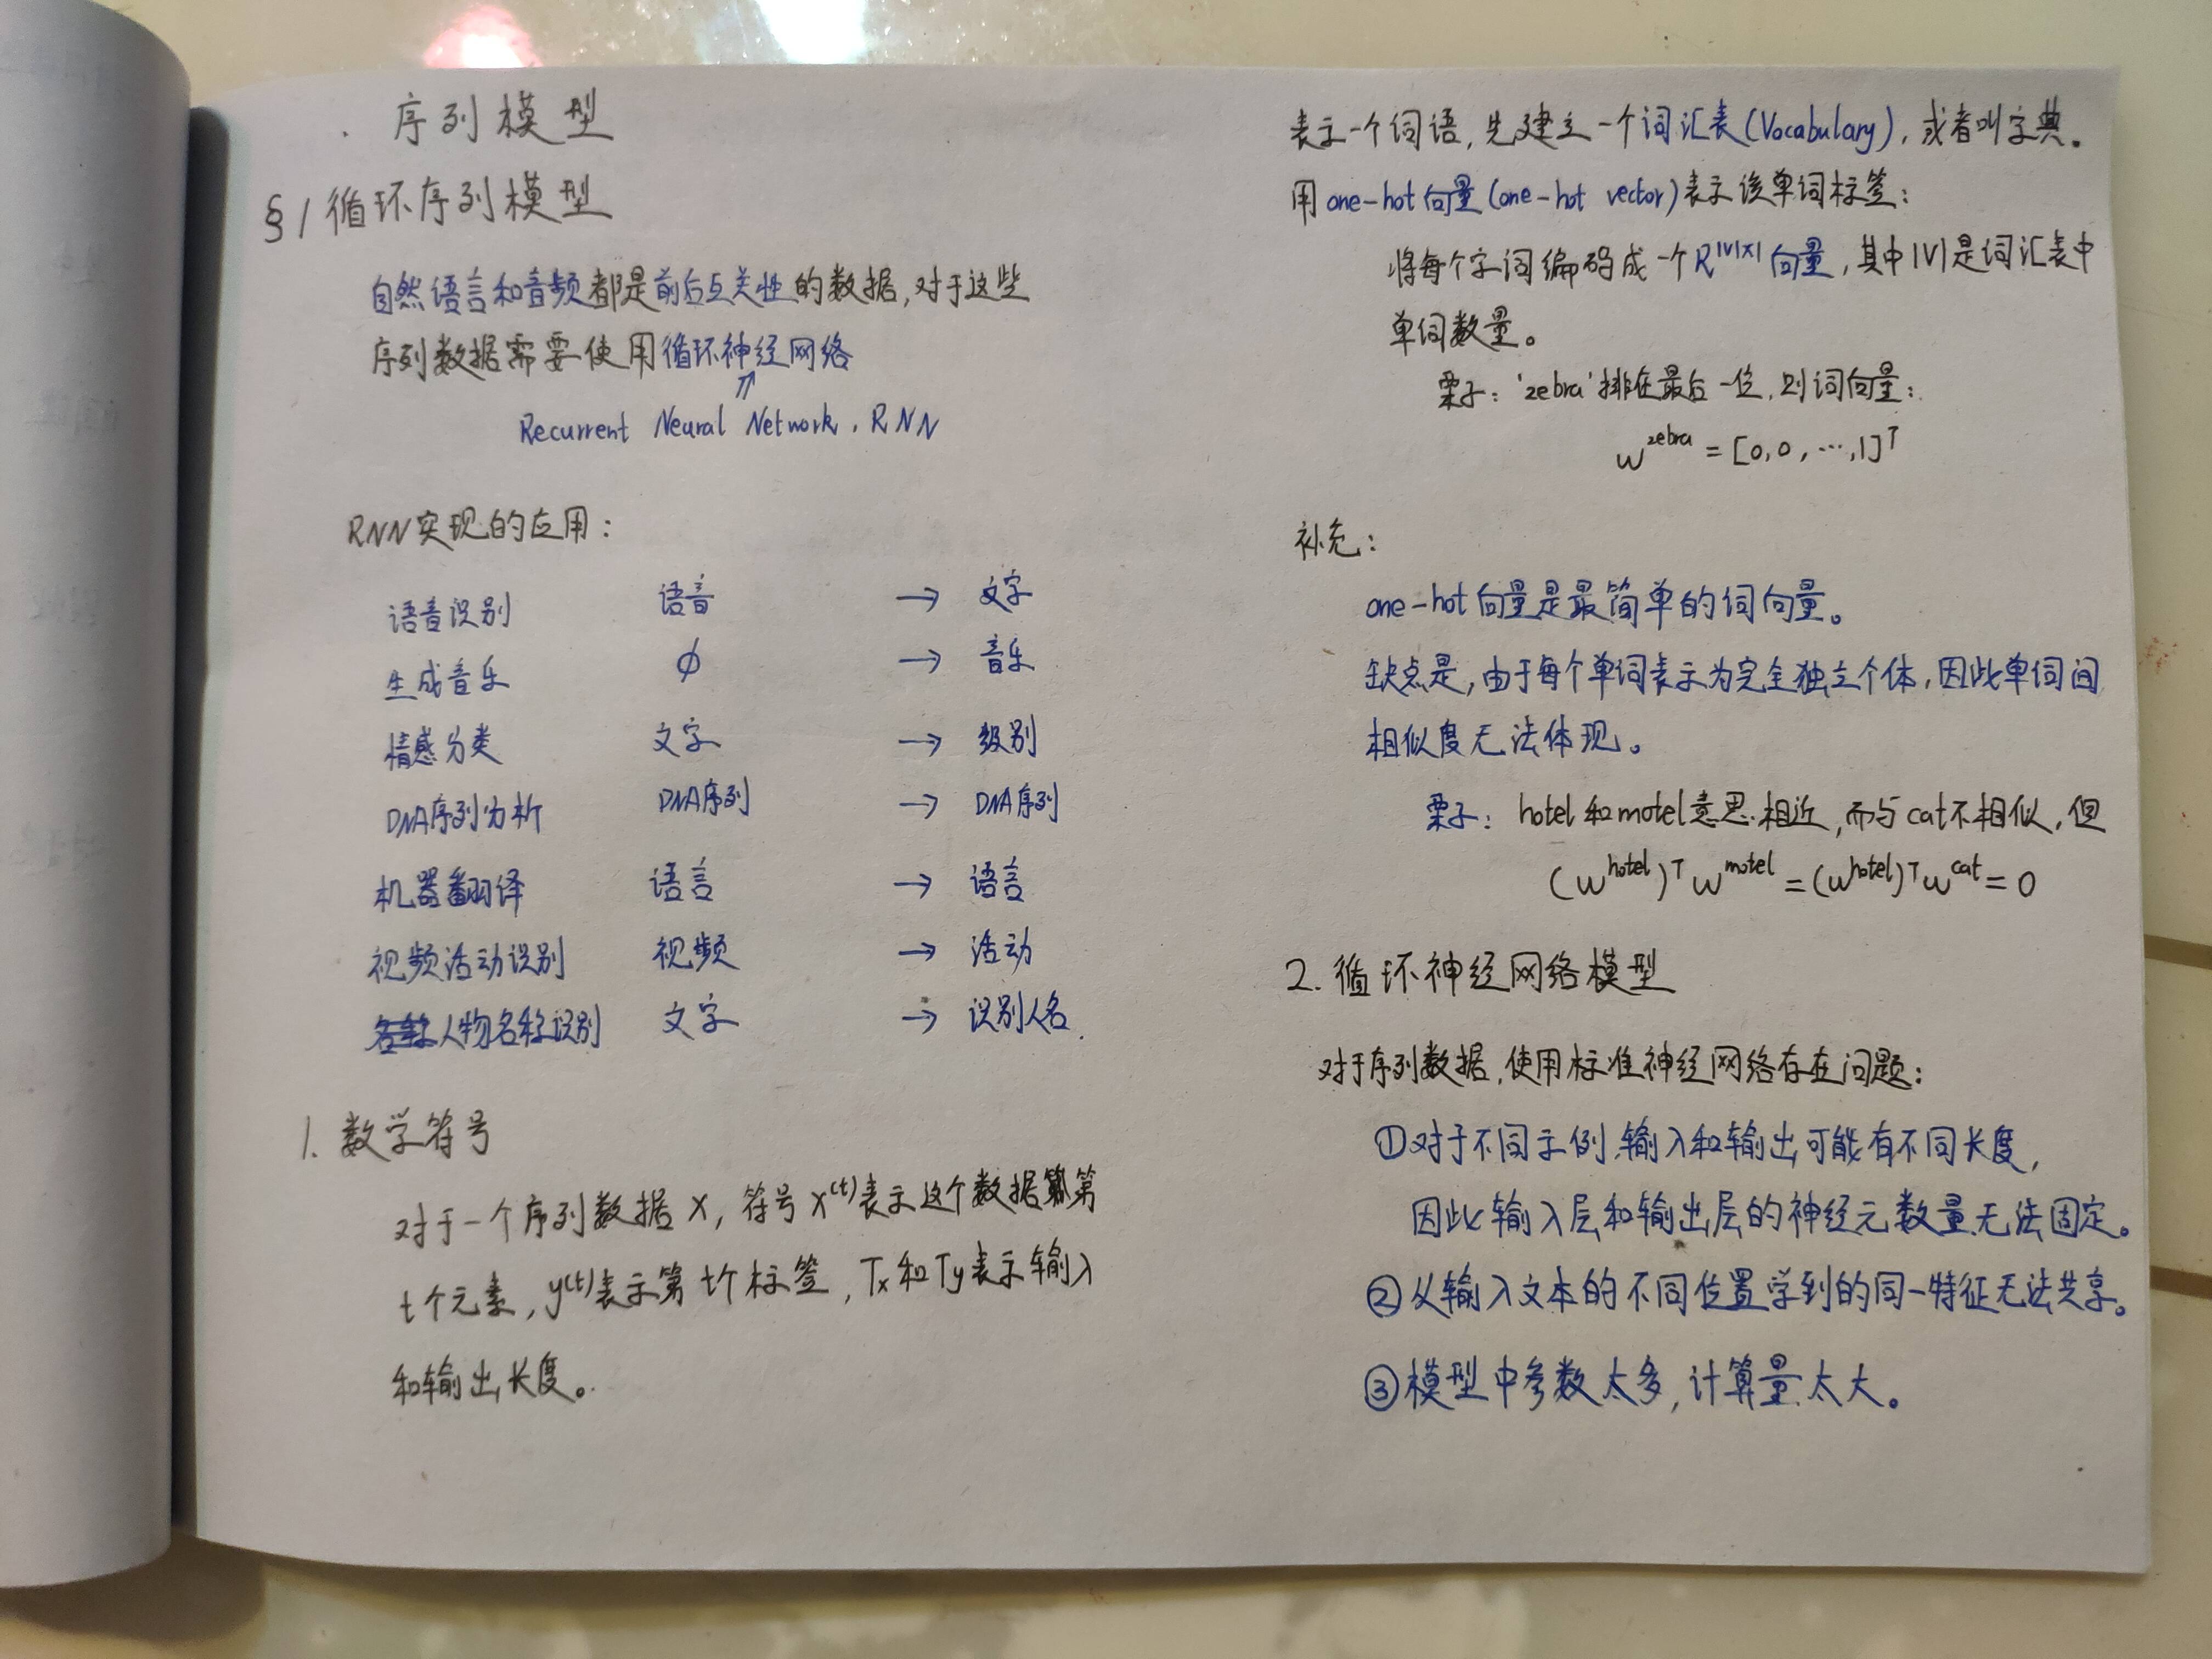 序列模型
§1 循环序列模型
自然语言和音频都是前后互关性的数据,对于这些
序列数据需要使用循环神经网络
Recurrent Neural Network, RNN
RNN实现的应用:
语音识别 语音 → 文字
生成音乐 ϕ → 音乐
情感分类 文字 → 级别
DNA序列分析 DNA序列 → DNA序列
机器翻译 语言 → 语言
视频活动识别 视频 → 活动
人物名称识别 文字 → 识别人名.
1. 数学符号
对于一个序列数据 x, 符号 x⁽ᵗ⁾表示这个数据第
t个元素, y⁽ᵗ⁾表示第t个标签, Tx和Ty表示输入
和输出长度。
表示一个词语,先建立一个词汇表(Vocabulary),或者叫字典。
用one-hot向量(one-hot vector)表示该单词标签:
将每个字词编码成一个R^|V|×1向量,其中|V|是词汇表中
单词数量。
栗子: 'zebra'排在最后一位,则词向量:
w^zebra = [0, 0, ⋯, 1]^T
补充:
one-hot向量是最简单的词向量。
缺点是,由于每个单词表示为完全独立个体,因此单词间
相似度无法体现。
栗子: hotel和motel意思相近,而与cat不相似,但
(w^hotel)^T w^motel = (w^hotel)^T w^cat = 0
2. 循环神经网络模型
对于序列数据,使用标准神经网络存在问题:
①对于不同示例,输入和输出可能有不同长度,
因此输入层和输出层的神经元数量无法固定。
②从输入文本的不同位置学到的同一特征无法共享。
③模型中参数太多,计算量太大。